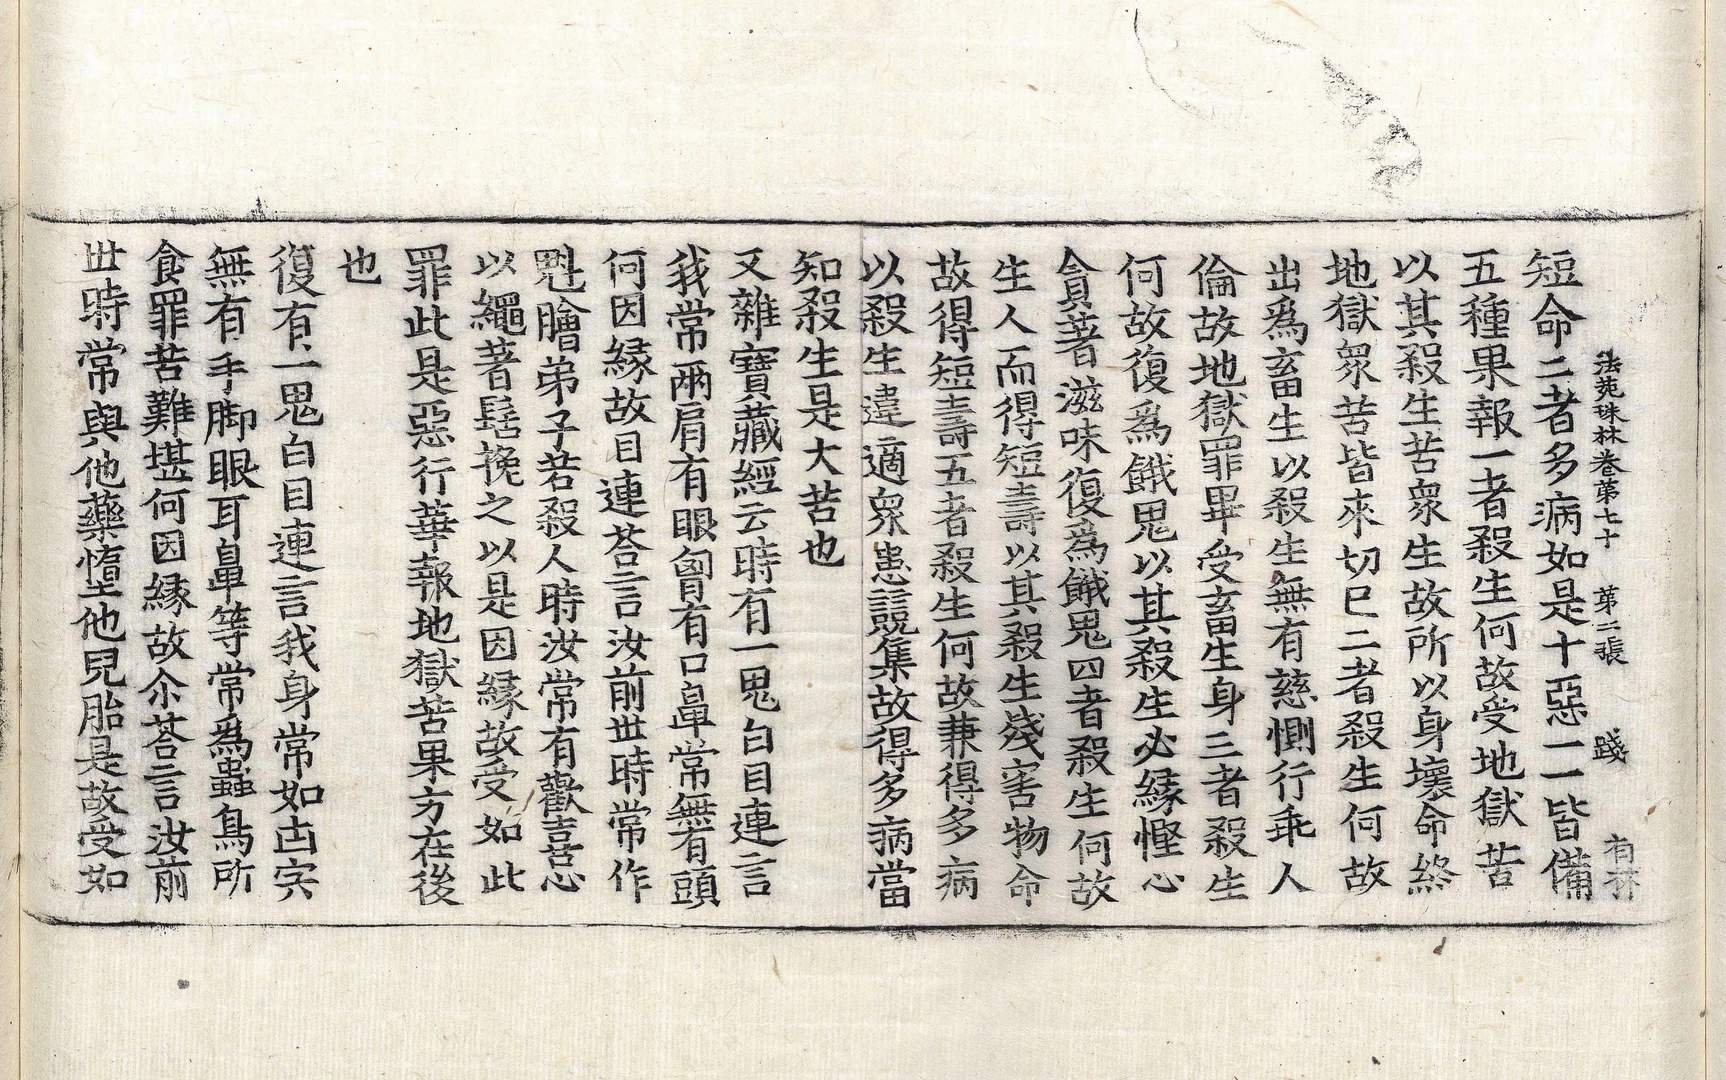 法苑珠林卷第七十 第二張 踐 有林
短命二者多病如是十惡一一皆備
五種果報一者殺生何故受地獄苦
以其殺生苦衆生故所以身壞命終
地獄衆苦皆來切已二者殺生何故
出爲畜生以殺生無有慈惻行乖人
倫故地獄罪畢受畜生身三者殺生
何故復爲餓鬼以其殺生必緣慳心
貪著滋味復爲餓鬼四者殺生何故
生人而得短壽以其殺生殘害物命
故得短壽五者殺生何故兼得多病
以殺生違適衆患競集故得多病當
知殺生是大苦也
又雜寶藏經云時有一鬼白目連言
我常兩肩有眼匈有口鼻常無有頭
何因緣故目連荅言汝前世時常作
魁膾弟子若殺人時汝常有歡喜心
以繩著髻挽之以是因緣故受如此
罪此是惡行華報地獄苦果方在後
也
復有一鬼白目連言我身常如凷宍
無有手脚眼耳鼻等常爲蟲鳥所
食罪苦難堪何因緣故尒荅言汝前
世時常與他藥墮他兒胎是故受如